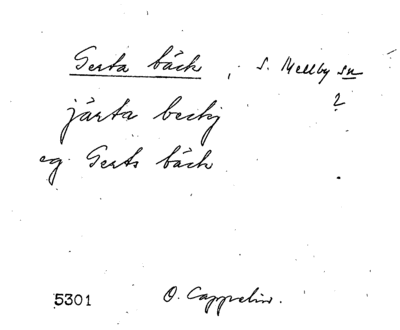 Gerta bäck, S. Mellby sn
?
järta beckj
eg. Gerts bäck
5301 O. Cappelin.